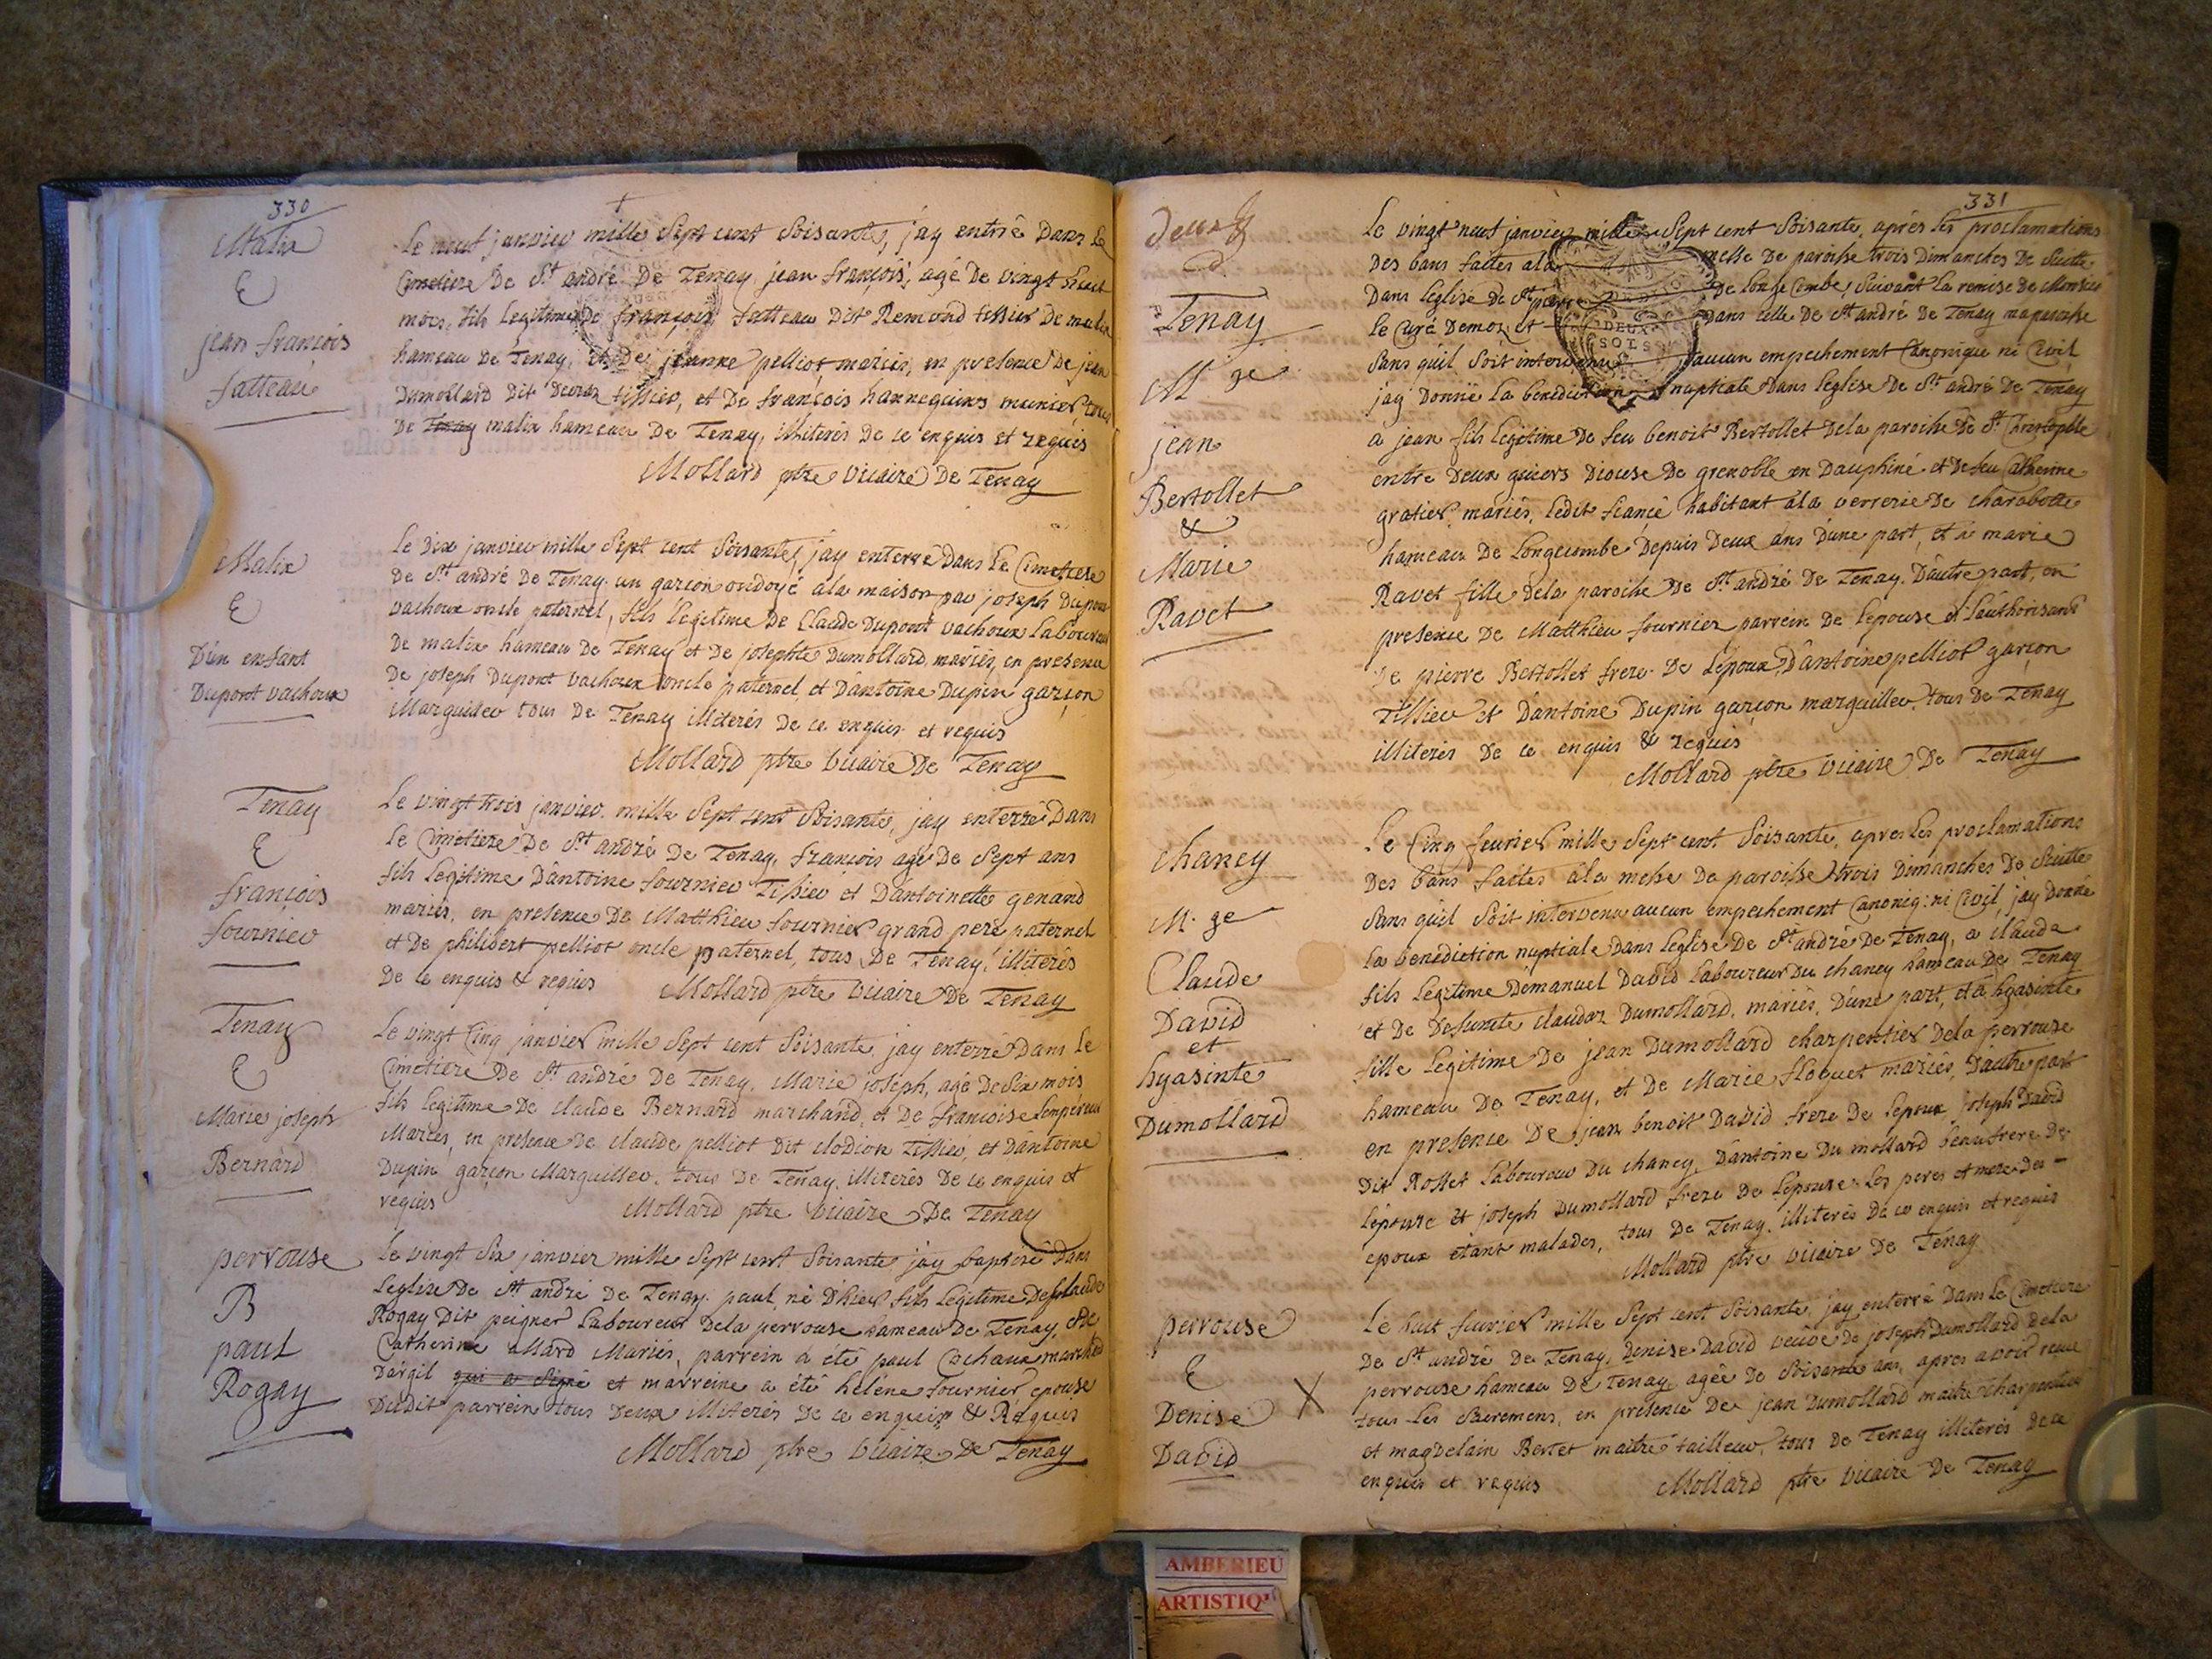 330
Malix
E
jean francois
fatteau
Le neuf janvier mille Sept cent Soisante, jay entrré Dans le
Cimetiere De St andré De Tenay jean françois, agé De vingt huit
mois, fils legitime De françois fatteau Dit Remond tissier De malix
hameau De Tenay, et De jeanne pelliot mariés, en presence De jean
Dumollard Dit tissier, et De françois hannequins munier tous
De Tenay malix hameau De Tenay, illiterés De ce enquis et requis
Mollard ptre vicaire De Tenay
Malix
E
D'un enfant
Dupont vachoux
Le Dix janvier mille Sept cent Soisante, jay enterré Dans Le Cimetiere
De St andré De Tenay un garçon ondoyé a la maison par joseph Dupont
vachoux oncle paternel, fils legitime De Claude Dupont vachoux laboureur
De malix hameau De Tenay et De josephte Dumollard, mariés, en presence
De joseph Dupont vachoux oncle paternel et D'antoine Dupin garçon
Marguiller tous De Tenay illiterés De ce enquis et requis
Mollard ptre vicaire De Tenay
Tenay
E
françois
fournier
Le vingt trois janvier mille Sept cent Soisante, jay enterré Dans
Le Cimetiere De St andré De Tenay, françois agé De Sept ans
fils legitime D'antoine fournier Tissier et D'antoinette genand
mariés, en presence De Matthieu fournier grand pere paternel
et De philibert pelliot oncle paternel, tous De Tenay, illiterés
De ce enquis & requis Mollard ptre vicaire De Tenay
Tenay
E
Marie joseph
Bernard
Le vingt Cinq janvier mille Sept cent Soisante jay enterré Dans le
Cimetiere De St andré De Tenay, Marie joseph, agé De Six mois
fils legitime De claude Bernard marchand, et De françoise Lempéreur
Mariés, en presence De claude pelliot Dit clodion Tissier, et D'antoine
Dupin garçon Marguiller, tous De Tenay, illiterés De ce enquis et
requis Mollard ptre vicaire De Tenay
perrouse
B
paul
Rogay
Le vingt Six janvier mille Sept cent Soisante jay baptisé Dans
Leglise De St andré De Tenay paul, né D'hier fils legitime De claude
Rogay Dit peigner Laboureur Dela perrouse hameau De Tenay, et De
Catherine allard Mariés, parrein a été paul Cachaux marchand
D'argil qui a Signé et marreine a été heléne fournier epouse
Dudit parrein tous Deux illiterés De ce enquis & Requis
Mollard ptre vicaire De Tenay
331
Deux
Tenay
M ge
jean
Bertollet
&
Marie
Ravet
Le vingt neuf janvier mille Sept cent Soisante, aprés les proclamations
Des bans faites ala messe De paroisse trois Dimanches De Suitte
Dans leglise De St pierre De longe Combe, Suivant La remise De Monsieur
Le Curé Demoz et Dans celle De St andré De Tenay ma paroisse
Sans qu'il Soit intervenu aucun empechement Canonique ni Civil
jay Donné La benediction nuptiale Dans leglise De St andré De Tenay
DEUX
SOLS
a jean fils legitime De feu benoit Bertollet Dela paroisse De St Christophle
entre Deux guiers Diocese De grenoble en Dauphiné et De feu Catherine
gratier mariés, ledit fiancé habitant ala verrerie De charabotte
hameau De Longecombe Depuis Deux ans D'une part, et a marie
Ravet fille Dela paroisse De St andré De Tenay D'autre part, en
presence De Matthieu fournier parrein De lepouse et l'authorisant
De pierre Bertollet frere De Lepoux, D'antoine pelliot garçon
Tissier et D'antoine Dupin garçon marguiller, tous De Tenay
illiterés De ce enquis & requis
Mollard ptre vicaire De Tenay
chaney
M. ge
Claude
David
et
hyasinte
Dumollard
Le Cinq fevrier mille Sept cent Soisante, apres Les proclamations
Des bans faites ala messe De paroisse trois Dimanches De Suitte
Sans qu'il Soit intervenu aucun empechement Canoniq: ni Civil, jay Donné
La benediction nuptiale Dans leglise De St andré De Tenay, a claude
fils Legitime D'emanuel David Laboureur Du chaney hameau De Tenay
et De Defuncte claudaz Dumollard, mariés, D'une part, et a hyasinte
fille Legitime De jean Dumollard charpentier Dela perrouse
hameau De Tenay, et De Marie floquet mariés, D'autre part
en presence De jean benoit David frere De Lepoux, joseph David
Dit Rosset Laboureur Du chaney, D'antoine Du mollard beaufrere De
Lepouse et joseph Dumollard frere De Lepouse. Les peres et mere Des
epoux etant malades, tous De Tenay illiterés De ce enquis et requis
Mollard ptre vicaire De Tenay
perrouse
E
Denise
David
X
Le huit fevrier mille Sept cent Soisante, jay enterré Dans Le Cimetiere
De St andré De Tenay, Denise David veuve De joseph Dumollard Dela
perrouse hameau De Tenay, agée De Soisante ans, apres avoir receu
tous Les Sacremens, en presence De jean Dumollard maitre charpentier
et magdelain Bertet maitre tailleur, tous De Tenay illiterés De ce
enquis et requis Mollard ptre vicaire De Tenay
AMBERIEU
ARTISTIQ'